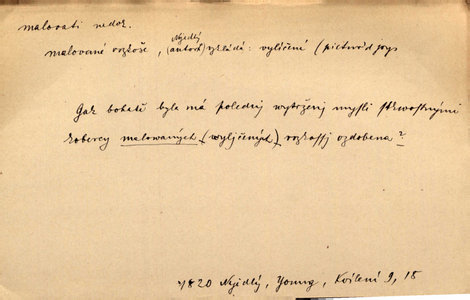 malovati nedok.
malované rozkoše, (autor) vykládá: vylíčené (pictur'd joys
Nejedlý
Gak bohatě byla má polednj wytrženj mysli skwostnými
kobercy malowaných (wyljčených) rozkossj ozdobena?
1820 Nejedlý, Young, Kvílení 9, 18